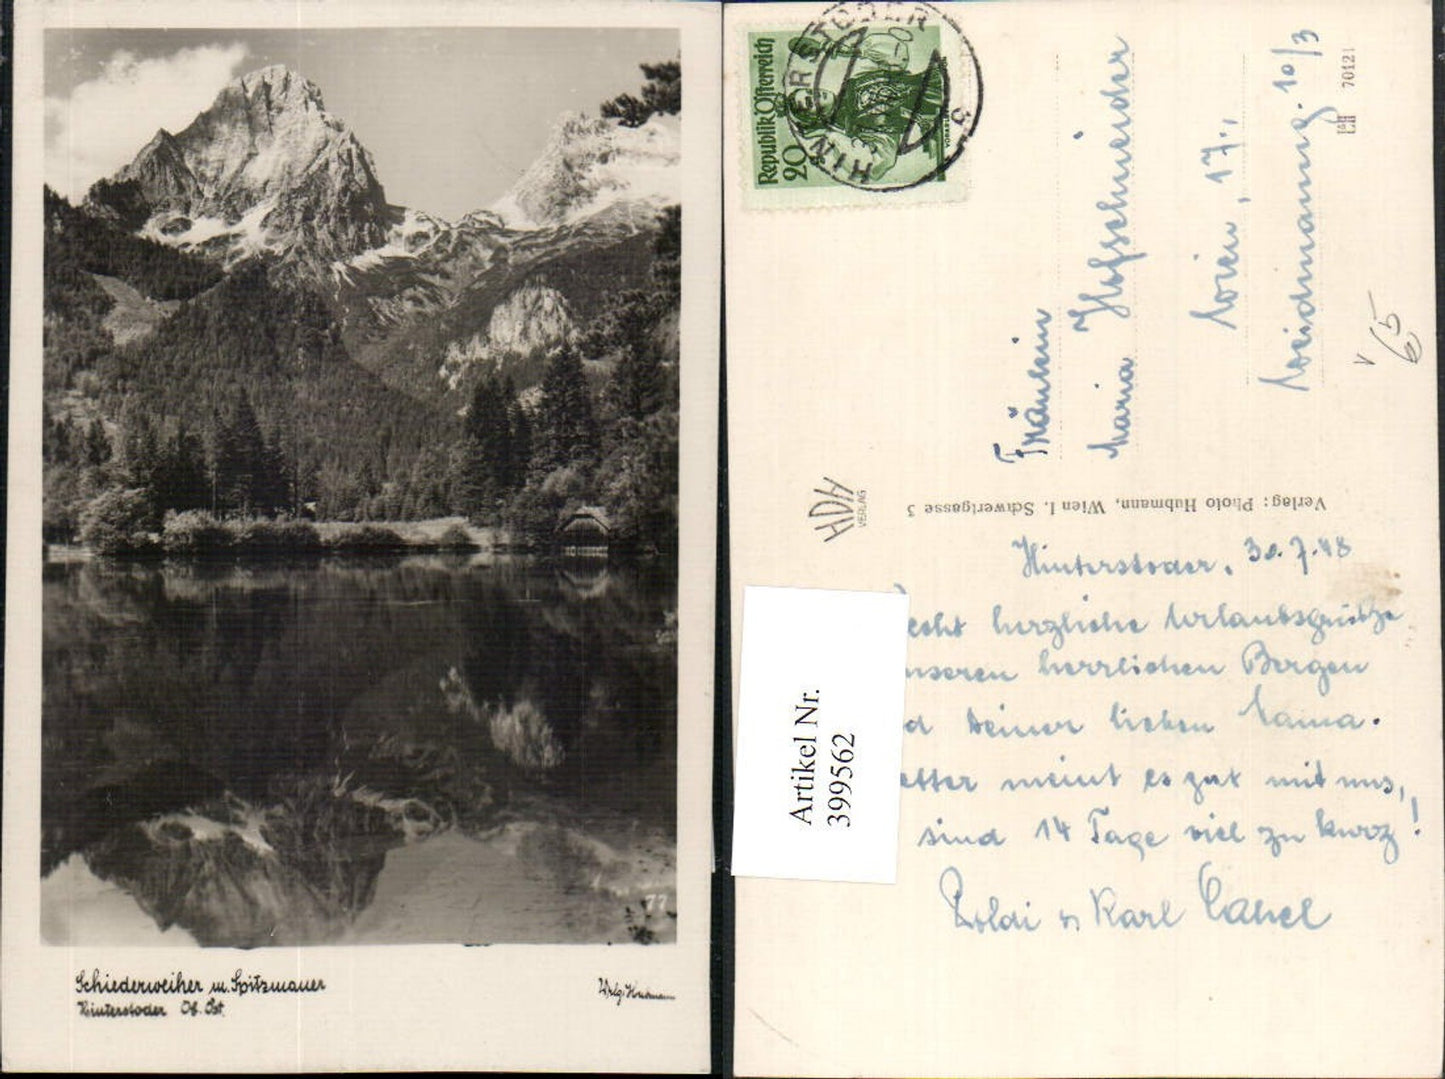 77
Schiederweiher m. Spitzmauer
Hinterstoder Ob. Öst.
Vrlg. Hubmann
Republik Österreich
20
HINTERSTODER
3
Fräulein
Maria Hofschneider
Wien, 17.,
Weidmanng. 10/3
L&H 70121
V
65
HDH
VERLAG
Verlag: Photo Hubmann, Wien I. Schwertgasse 3
Hinterstoder, 30.7.48
echt herzliche Urlaubsgrüße
nseren herrlichen Bergen
d Deiner lieben Mama.
etter meint es gut mit uns,
sind 14 Tage viel zu kurz!
Poldi u Karl
Artikel Nr.
399562